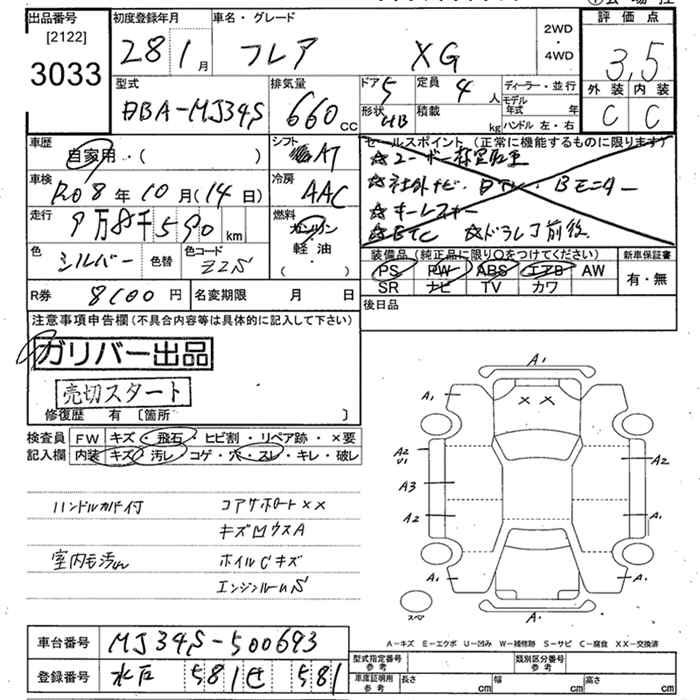 出品番号 初度登録年月 車名・グレード 2WD・4WD 評価点
[2122]
3033
28 1月 フレア XG 3.5
外装 内装
C C
型式 排気量 ドア 定員 ディーラー・並行
DBA-MJ34S 660cc 5 4人 モデル年式 年
形状 積載
HB kg ハンドル 左・右
車歴 シフト セールスポイント(正常に機能するものに限ります)
自家用・( ) AT
車検 冷房
R08年10月(14日) AAC
☆社外ナビ・DTV・Bモニター
☆キーレスキー
☆ETC ☆ドラレコ前後
走行 燃料
9万8千590km ガソリン
軽・油
( )
色 色替 色コード
シルバー ZZS
装備品(純正品に限り○をつけてください) 新車保証書
PS PW ABS エアB AW 有・無
SR ナビ TV カワ
R券 8100円 名変期限 月 日
後日品
注意事項申告欄(不具合内容等は具体的に記入して下さい)
ガリバー出品
売切スタート
修復歴 有 〔箇所 〕
検査員 FW キズ・飛石・ヒビ割・リペア跡・×要
記入欄 内装 キズ・汚レ・コゲ・穴・スレ・キレ・破レ
ハンドルカバー付 コアサポート××
キズ凹ウスA
室内モ汚レ ホイルCキズ
エンジンルームS
A1
××
A1 A1
A2
U1
A2
A3
A2 A1
A1 A1
A1
スペア
A-キズ E-エクボ U-凹み W-補修跡 S-サビ C-腐食 XX-交換済
車台番号 MJ34S-500693
登録番号 水戸 581 せ 581
型式指定番号 参考 類別区分番号 参考
車庫証明用 参考 長さ cm 幅 cm 高さ cm